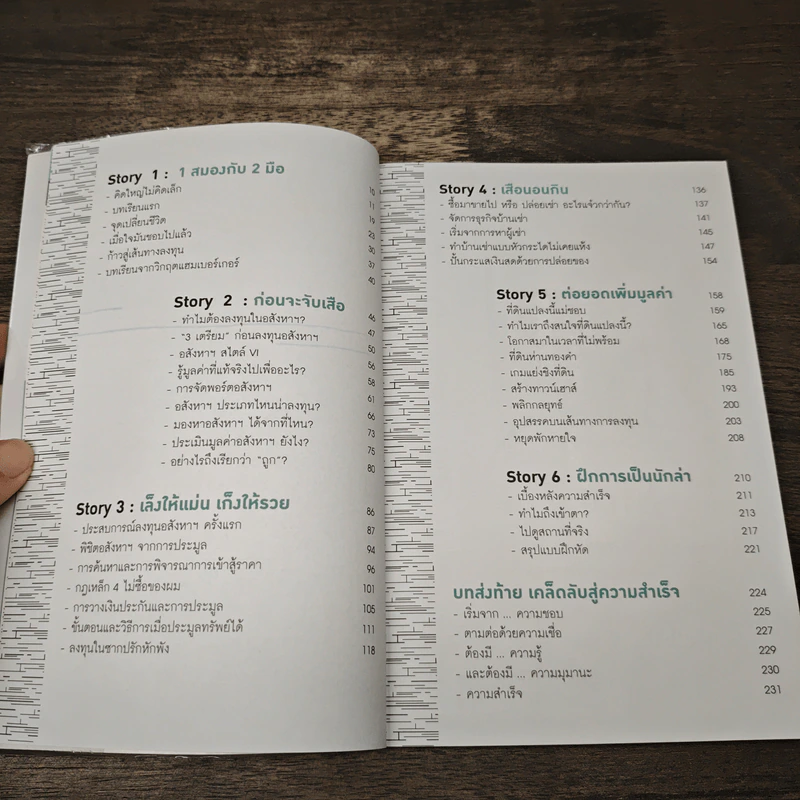 Story 1 : 1 สมองกับ 2 มือ
- คิดใหญ่ไม่คิดเล็ก 10
- บทเรียนแรก 11
- จุดเปลี่ยนชีวิต 19
- เมื่อใจมันชอบไปแล้ว 23
- ก้าวสู่เส้นทางลงทุน 30
- บทเรียนจากวิกฤตแฮมเบอร์เกอร์ 37
40
Story 2 : ก่อนจะจับเสือ 46
- ทำไมต้องลงทุนในอสังหาฯ? 47
- "3 เตรียม" ก่อนลงทุนอสังหาฯ 50
- อสังหาฯ สไตล์ VI 56
- รู้มูลค่าที่แท้จริงไปเพื่ออะไร? 58
- การจัดพอร์ตอสังหาฯ 61
- อสังหาฯ ประเภทไหนน่าลงทุน? 66
- มองหาอสังหาฯ ได้จากที่ไหน? 73
- ประเมินมูลค่าอสังหาฯ ยังไง? 75
- อย่างไรถึงเรียกว่า "ถูก"? 80
Story 3 : เล็งให้แม่น เก็งให้รวย 86
- ประสบการณ์ลงทุนอสังหาฯ ครั้งแรก 87
- พิชิตอสังหาฯ จากการประมูล 94
- การค้นหาและการพิจารณาการเข้าสู้ราคา 96
- กฎเหล็ก 4 ไม่ซื้อของผม 101
- การวางเงินประกันและการประมูล 105
- ขั้นตอนและวิธีการเมื่อประมูลทรัพย์ได้ 111
- ลงทุนในซากปรักหักพัง 118
Story 4 : เสือนอนกิน 136
- ซื้อมาขายไป หรือ ปล่อยเช่า อะไรแจ๋วกว่ากัน? 137
- จัดการธุรกิจบ้านเช่า 141
- เริ่มจากการหาผู้เช่า 145
- ทำบ้านเช่าแบบหัวกระไดไม่เคยแห้ง 147
- ปั้นกระแสเงินสดด้วยการปล่อยของ 154
Story 5 : ต่อยอดเพิ่มมูลค่า 158
- ที่ดินแปลงนี้แม่ชอบ 159
- ทำไมเราถึงสนใจที่ดินแปลงนี้? 165
- โอกาสมาในเวลาที่ไม่พร้อม 168
- ที่ดินห่านทองคำ 175
- เกมแย่งชิงที่ดิน 185
- สร้างทาวน์เฮาส์ 193
- พลิกกลยุทธ์ 200
- อุปสรรคบนเส้นทางการลงทุน 203
- หยุดพักหายใจ 208
Story 6 : ฝึกการเป็นนักล่า 210
- เบื้องหลังความสำเร็จ 211
- ทำไมถึงเข้าตา? 213
- ไปดูสถานที่จริง 217
- สรุปแบบฝึกหัด 221
บทส่งท้าย เคล็ดลับสู่ความสำเร็จ 224
- เริ่มจาก ... ความชอบ 225
- ตามต่อด้วยความเชื่อ 227
- ต้องมี ... ความรู้ 229
- และต้องมี ... ความมุมานะ 230
- ความสำเร็จ 231